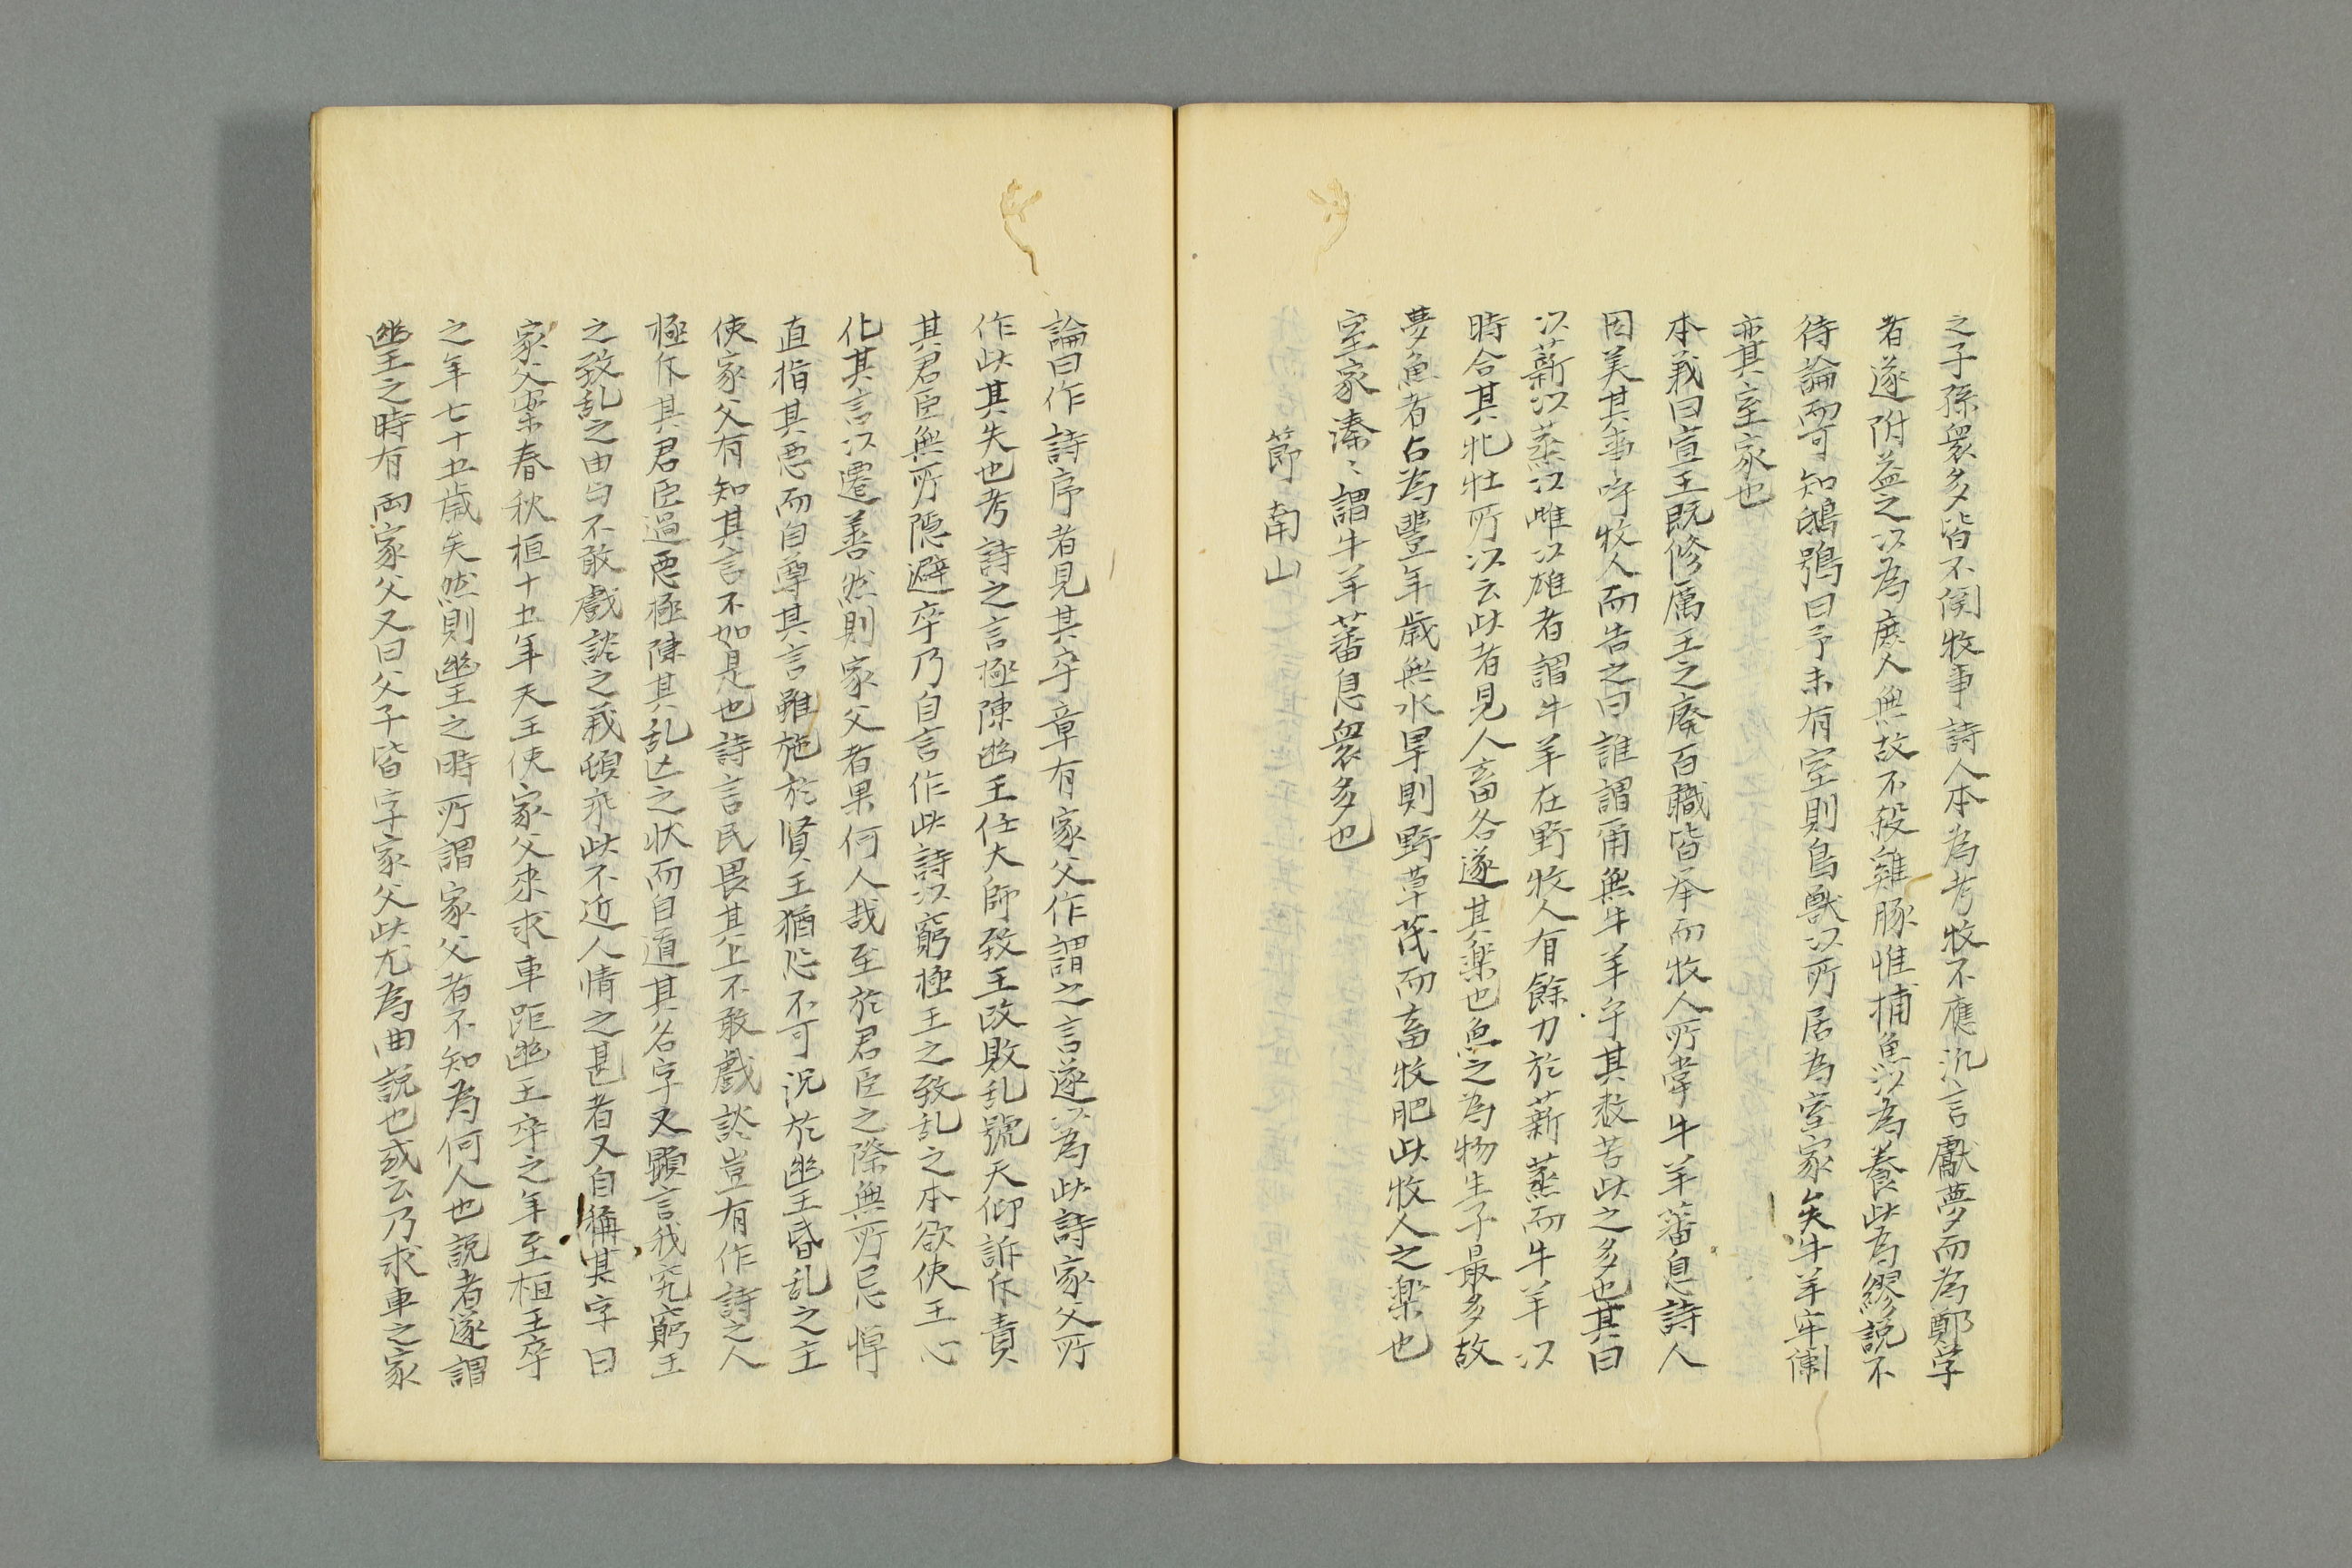 之子孫衆多皆不関牧事詩人本為考牧不應汎言獻夢而為鄭学
者遂附益之以為庶人無故不殺雞豚惟捕魚以為養此為繆説不
待論而可知鴟鴞曰予未有室則鳥獸以所居為室家矣牛羊牢闌
亦其室家也
本義曰宣王既修厲王之廃百職皆挙而牧人所掌牛羊蕃息詩人
因美其事呼牧人而告之曰誰謂爾無牛羊乎其数若此之多也其曰
以薪以蒸以雌以雄者謂牛羊在野牧人有餘力於薪蒸而牛羊以
時合其牝牡所以云此者見人畜各遂其楽也魚之為物生子最多故
夢魚者占為豊年歳無水旱則野草茂而畜牧肥此牧人之楽也
室家溱〻謂牛羊蕃息衆多也
節南山
論曰作詩序者見其卒章有家父作誦之言遂以為此詩家父所
作此其失也考詩之言極陳幽王任大師致王政敗乱號天仰訴斥責
其君臣無所隠避卒乃自言作此詩以窮極王之致乱之本欲使王心
化其言以遷善然則家父者果何人哉至於君臣之際無所忌憚
直指其悪而自尊其言雖施於賢王猶恐不可況於幽王昏乱之主
使家父有知其言不如是也詩言民畏其上不敢戯談豈有作詩之人
極斥其君臣過悪極陳其乱亡之状而自道其名字又顕言我究窮王
之致乱之由与不敢戯談之義頓乖此不近人情之甚者又自稱其字曰
家父案春秋桓十五年天王使家父来求車距幽王卒之年至桓王卒
之年七十五歳矣然則幽王之時所謂家父者不知為何人也説者遂謂
幽王之時有両家父又曰父子皆字家父此尤為曲説也或云乃求車之家